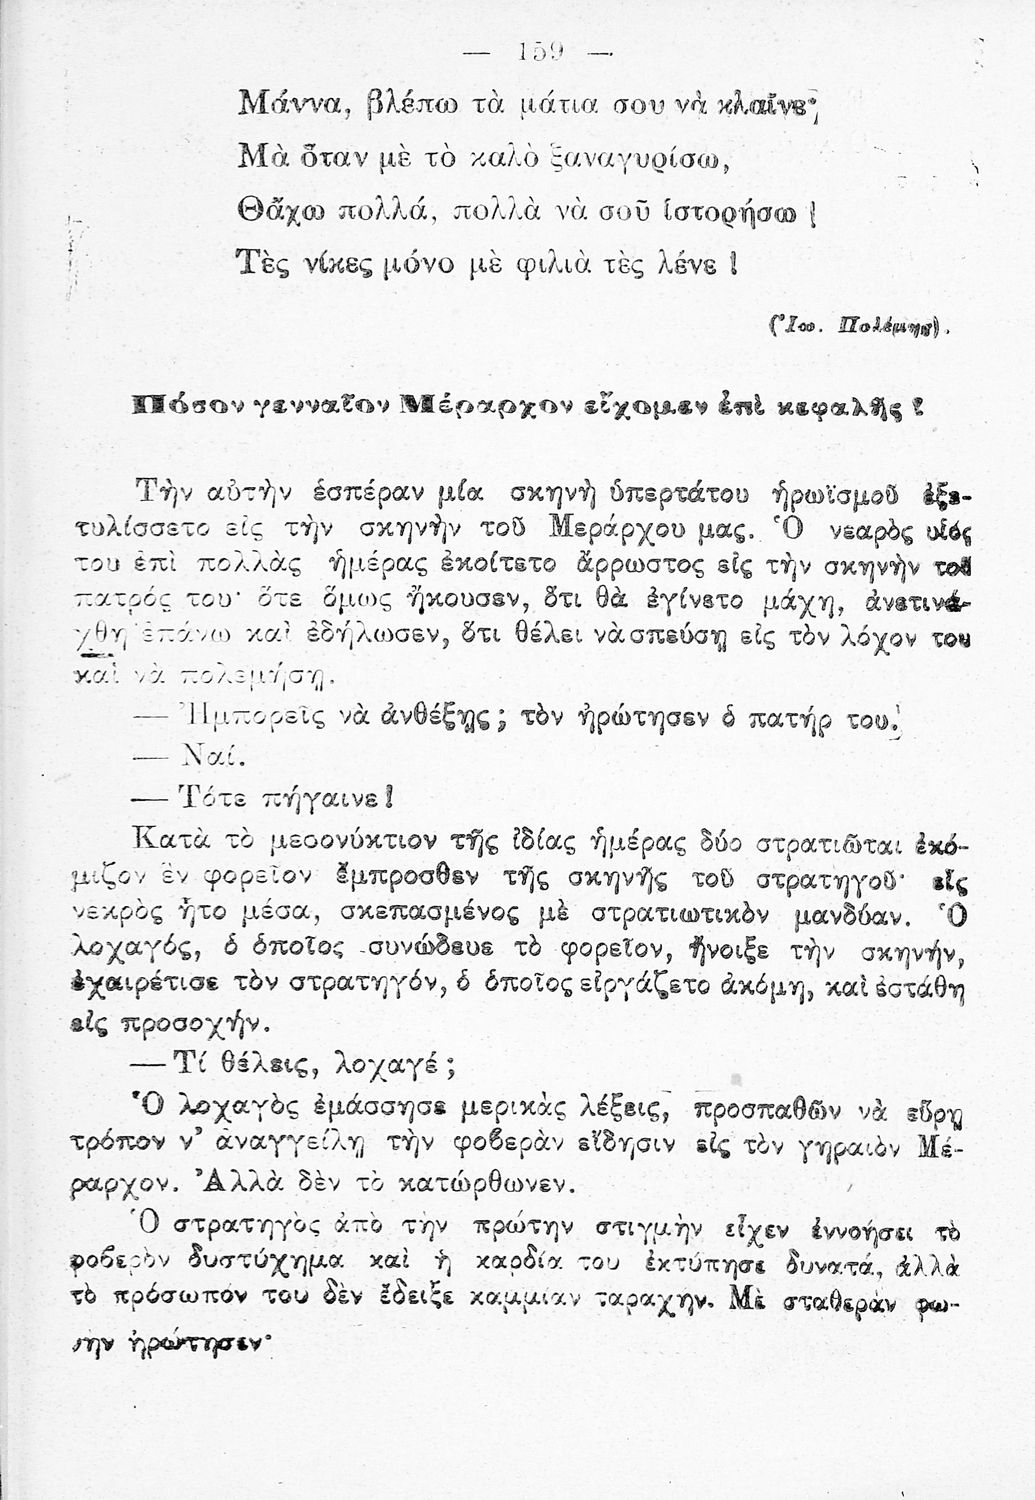 — 159 —
Μάννα, βλέπω τὰ μάτια σου νὰ κλαῖνε·
Μὰ ὅταν μὲ τὸ καλὸ ξαναγυρίσω,
Θἄχω πολλά, πολλὰ νὰ σοῦ ἱστορήσω !
Τὲς νίκες μόνο μὲ φιλιὰ τὲς λένε !
(Ἰω. Πολέμης).
Πόσον γενναῖον Μέραρχον εἴχομεν ἐπὶ κεφαλῆς !
Τὴν αὐτὴν ἑσπέραν μία σκηνὴ ὑπερτάτου ἡρωϊσμοῦ ἐξε-
τυλίσσετο εἰς τὴν σκηνὴν τοῦ Μεράρχου μας. Ὁ νεαρὸς υἱός
του ἐπὶ πολλὰς ἡμέρας ἐκοίτετο ἄρρωστος εἰς τὴν σκηνὴν τοῦ
πατρός του· ὅτε ὅμως ἤκουσεν, ὅτι θὰ ἐγίνετο μάχη, ἀνετινά-
χθη ἐπάνω καὶ ἐδήλωσεν, ὅτι θέλει νὰ σπεύσῃ εἰς τὸν λόχον του
καὶ νὰ πολεμήσῃ.
— Ἠμπορεῖς νὰ ἀνθέξῃς; τὸν ἠρώτησεν ὁ πατήρ του.
— Ναί.
— Τότε πήγαινε!
Κατὰ τὸ μεσονύκτιον τῆς ἰδίας ἡμέρας δύο στρατιῶται ἐκό-
μιζον ἓν φορεῖον ἔμπροσθεν τῆς σκηνῆς τοῦ στρατηγοῦ· εἷς
νεκρὸς ἦτο μέσα, σκεπασμένος μὲ στρατιωτικὸν μανδύαν. Ὁ
λοχαγός, ὁ ὁποῖος συνώδευε τὸ φορεῖον, ἤνοιξε τὴν σκηνήν,
ἐχαιρέτισε τὸν στρατηγόν, ὁ ὁποῖος εἰργάζετο ἀκόμη, καὶ ἐστάθη
εἰς προσοχήν.
— Τί θέλεις, λοχαγέ;
Ὁ λοχαγὸς ἐμάσσησε μερικὰς λέξεις, προσπαθῶν νὰ εὕρῃ
τρόπον ν' ἀναγγείλῃ τὴν φοβερὰν εἴδησιν εἰς τὸν γηραιὸν Μέ-
ραρχον. Ἀλλὰ δὲν τὸ κατώρθωνεν.
Ὁ στρατηγὸς ἀπὸ τὴν πρώτην στιγμὴν εἶχεν ἐννοήσει τὸ
φοβερὸν δυστύχημα καὶ ἡ καρδία του ἐκτύπησε δυνατά, ἀλλὰ
τὸ πρόσωπόν του δὲν ἔδειξε καμμίαν ταραχήν. Μὲ σταθερὰν φω-
νὴν ἠρώτησεν·